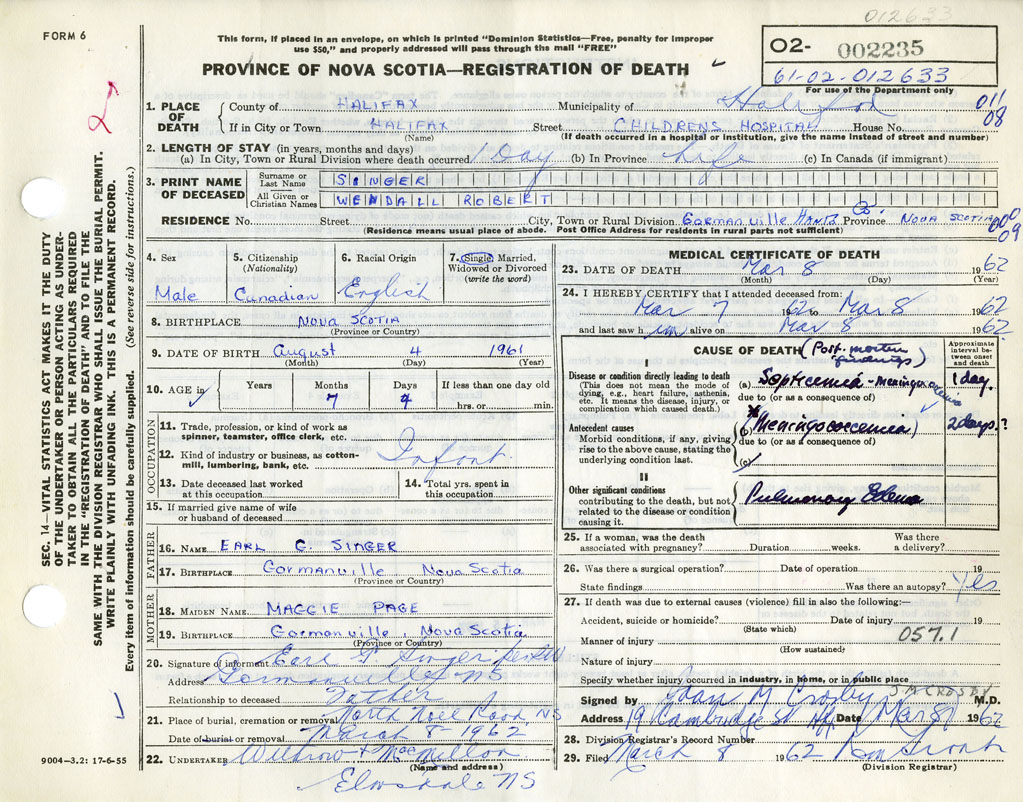 012633
FORM 6
This form, if placed in an envelope, on which is printed "Dominion Statistics—Free, penalty for improper
use $50," and properly addressed will pass through the mail "FREE"
PROVINCE OF NOVA SCOTIA—REGISTRATION OF DEATH
02- 002235
61-02-012633
For use of the Department only
011
08
1. PLACE OF DEATH
County of HALIFAX Municipality of
If in City or Town HALIFAX Street CHILDRENS HOSPITAL House No.
(Name) (If death occurred in a hospital or institution, give the name instead of street and number)
2. LENGTH OF STAY (in years, months and days)
(a) In City, Town or Rural Division where death occurred 1 Day (b) In Province Life (c) In Canada (if immigrant)
3. PRINT NAME OF DECEASED
Surname or Last Name SINGER
All Given or Christian Names WENDALL ROBERT
RESIDENCE No. Street City, Town or Rural Division Gormanville Hants Co. Province NOVA SCOTIA
(Residence means usual place of abode. Post Office Address for residents in rural parts not sufficient)
09
4. Sex
Male
5. Citizenship
(Nationality)
Canadian
6. Racial Origin
English
7. Single, Married,
Widowed or Divorced
(write the word)
8. BIRTHPLACE NOVA SCOTIA
(Province or Country)
9. DATE OF BIRTH August 4 1961
(Month) (Day) (Year)
10. AGE in Years Months Days If less than one day old
7 4 hrs. or min.
OCCUPATION
11. Trade, profession, or kind of work as
spinner, teamster, office clerk, etc.
12. Kind of industry or business, as cotton-
mill, lumbering, bank, etc. Infant
13. Date deceased last worked
at this occupation
14. Total yrs. spent in
this occupation
15. If married give name of wife
or husband of deceased
FATHER
16. NAME EARL G. SINGER
17. BIRTHPLACE Gormanville Nova Scotia
(Province or Country)
MOTHER
18. MAIDEN NAME MAGGIE PAGE
19. BIRTHPLACE Gormanville, Nova Scotia
(Province or Country)
20. Signature of informant Earl G. Singer
Address Gormanville NS
Relationship to deceased Father
21. Place of burial, cremation or removal North Noel Road, NS
Date of burial or removal March 8-1962
22. UNDERTAKER
(Name and address)
Elmsdale NS
MEDICAL CERTIFICATE OF DEATH
23. DATE OF DEATH Mar 8 1962
(Month) (Day) (Year)
24. I HEREBY CERTIFY that I attended deceased from:
Mar 7 1962 to Mar 8 1962
and last saw him alive on Mar 8 1962
CAUSE OF DEATH (Post-mortem findings)
Approximate
interval be-
tween onset
and death
Disease or condition directly leading to death
(This does not mean the mode of
dying, e.g., heart failure, asthenia,
etc. It means the disease, injury, or
complication which caused death.)
(a) Septicemia - Meningococcemia 1 day.
due to (or as a consequence of)
Antecedent causes
Morbid conditions, if any, giving
rise to the above cause, stating the
underlying condition last.
(b) Meningococcemia 2 days.?
due to (or as a consequence of)
(c)
II
Other significant conditions
contributing to the death, but not
related to the disease or condition
causing it.
Pulmonary Edema
25. If a woman, was the death
associated with pregnancy? Duration weeks. Was there
a delivery?
26. Was there a surgical operation? Date of operation 19
State findings Was there an autopsy? Yes
27. If death was due to external causes (violence) fill in also the following:—
Accident, suicide or homicide? Date of injury 19
(State which)
Manner of injury 057.1
(How sustained)
Nature of injury
Specify whether injury occurred in industry, in home, or in public place
Signed by Joan M Crosby J.M CROSBY M.D.
Address 19 Cambridge St Hfx Date Mar 8/ 1962
28. Division Registrar's Record Number
29. Filed March 8 1962
(Division Registrar)
SEC. 14—VITAL STATISTICS ACT MAKES IT THE DUTY
OF THE UNDERTAKER OR PERSON ACTING AS UNDER-
TAKER TO OBTAIN ALL THE PARTICULARS REQUIRED
IN THE "REGISTRATION OF DEATH" AND TO FILE THE
SAME WITH THE DIVISION REGISTRAR WHO SHALL ISSUE THE BURIAL PERMIT.
WRITE PLAINLY WITH UNFADING INK. THIS IS A PERMANENT RECORD.
Every item of information should be carefully supplied. (See reverse side for instructions.)
9004-3.2: 17-6-55